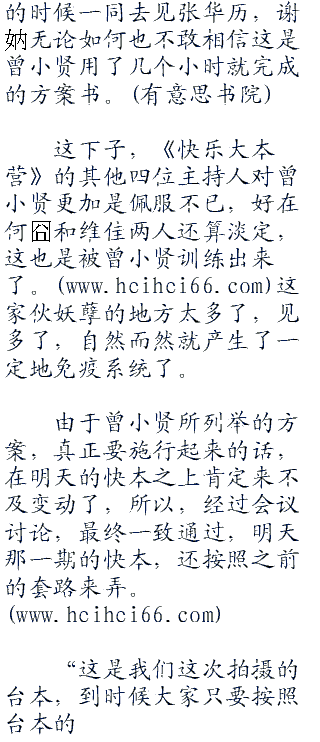 的时候一同去见张华历，谢
妠无论如何也不敢相信这是
曾小贤用了几个小时就完成
的方案书。(有意思书院)
这下子，《快乐大本
营》的其他四位主持人对曾
小贤更加是佩服不已，好在
何囧和维佳两人还算淡定，
这也是被曾小贤训练出来
了。(www.hcihci66.com)这
家伙妖孽的地方太多了，见
多了，自然而然就产生了一
定地免疫系统了。
由于曾小贤所列举的方
案，真正要施行起来的话，
在明天的快本之上肯定来不
及变动了，所以，经过会议
讨论，最终一致通过，明天
那一期的快本，还按照之前
的套路来弄。
(www.hcihci66.com)
“这是我们这次拍摄的
台本，到时候大家只要按照
台本的